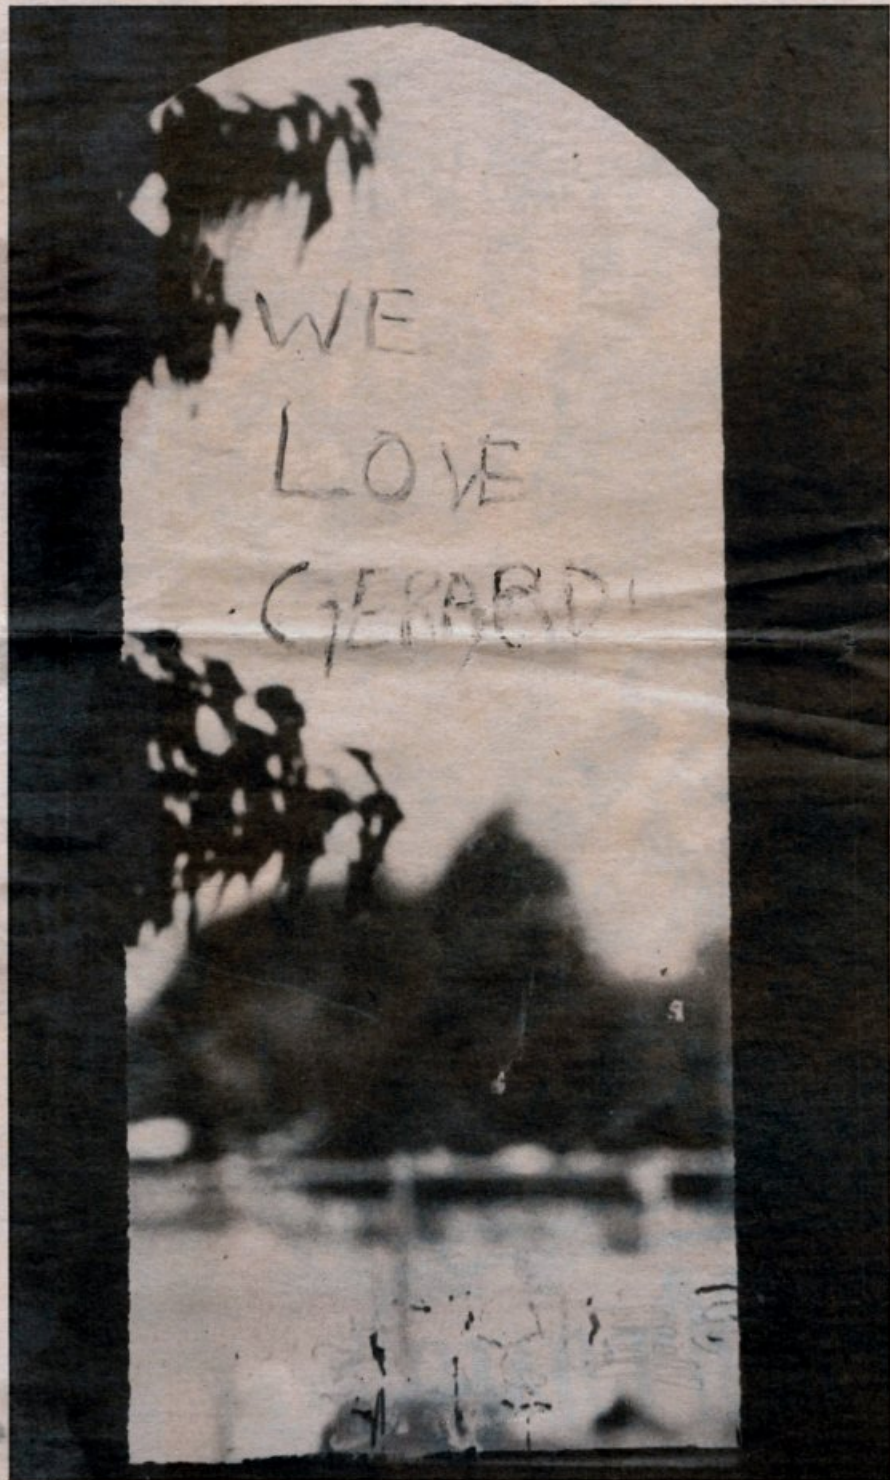 WE
LOVE
GERARD